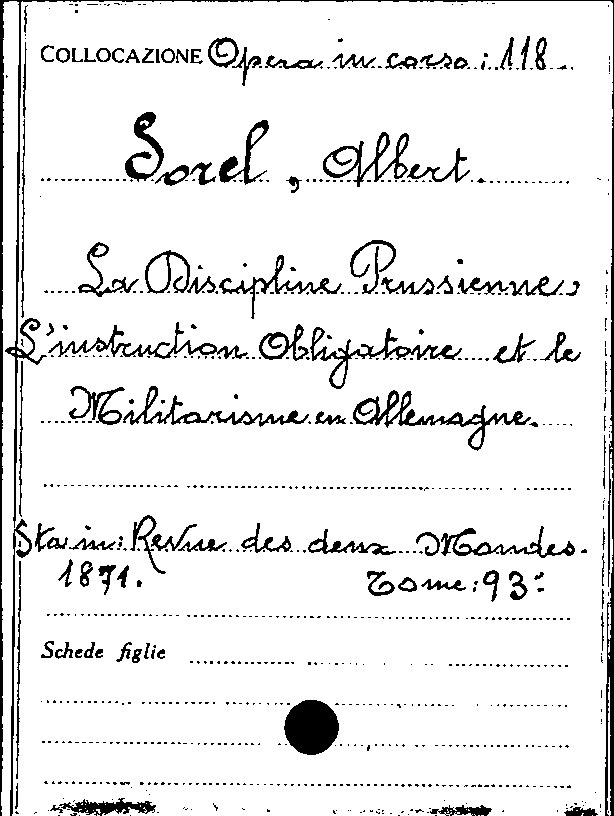 COLLOCAZIONE Opera in corso: 118.
Sorel, Albert.
La Discipline Prussienne,
L'instruction Obligatoire et le
Militarisme en Allemagne.
Sta in: Revue des deux Mondes.
1871. Tome: 93:
Schede figlie